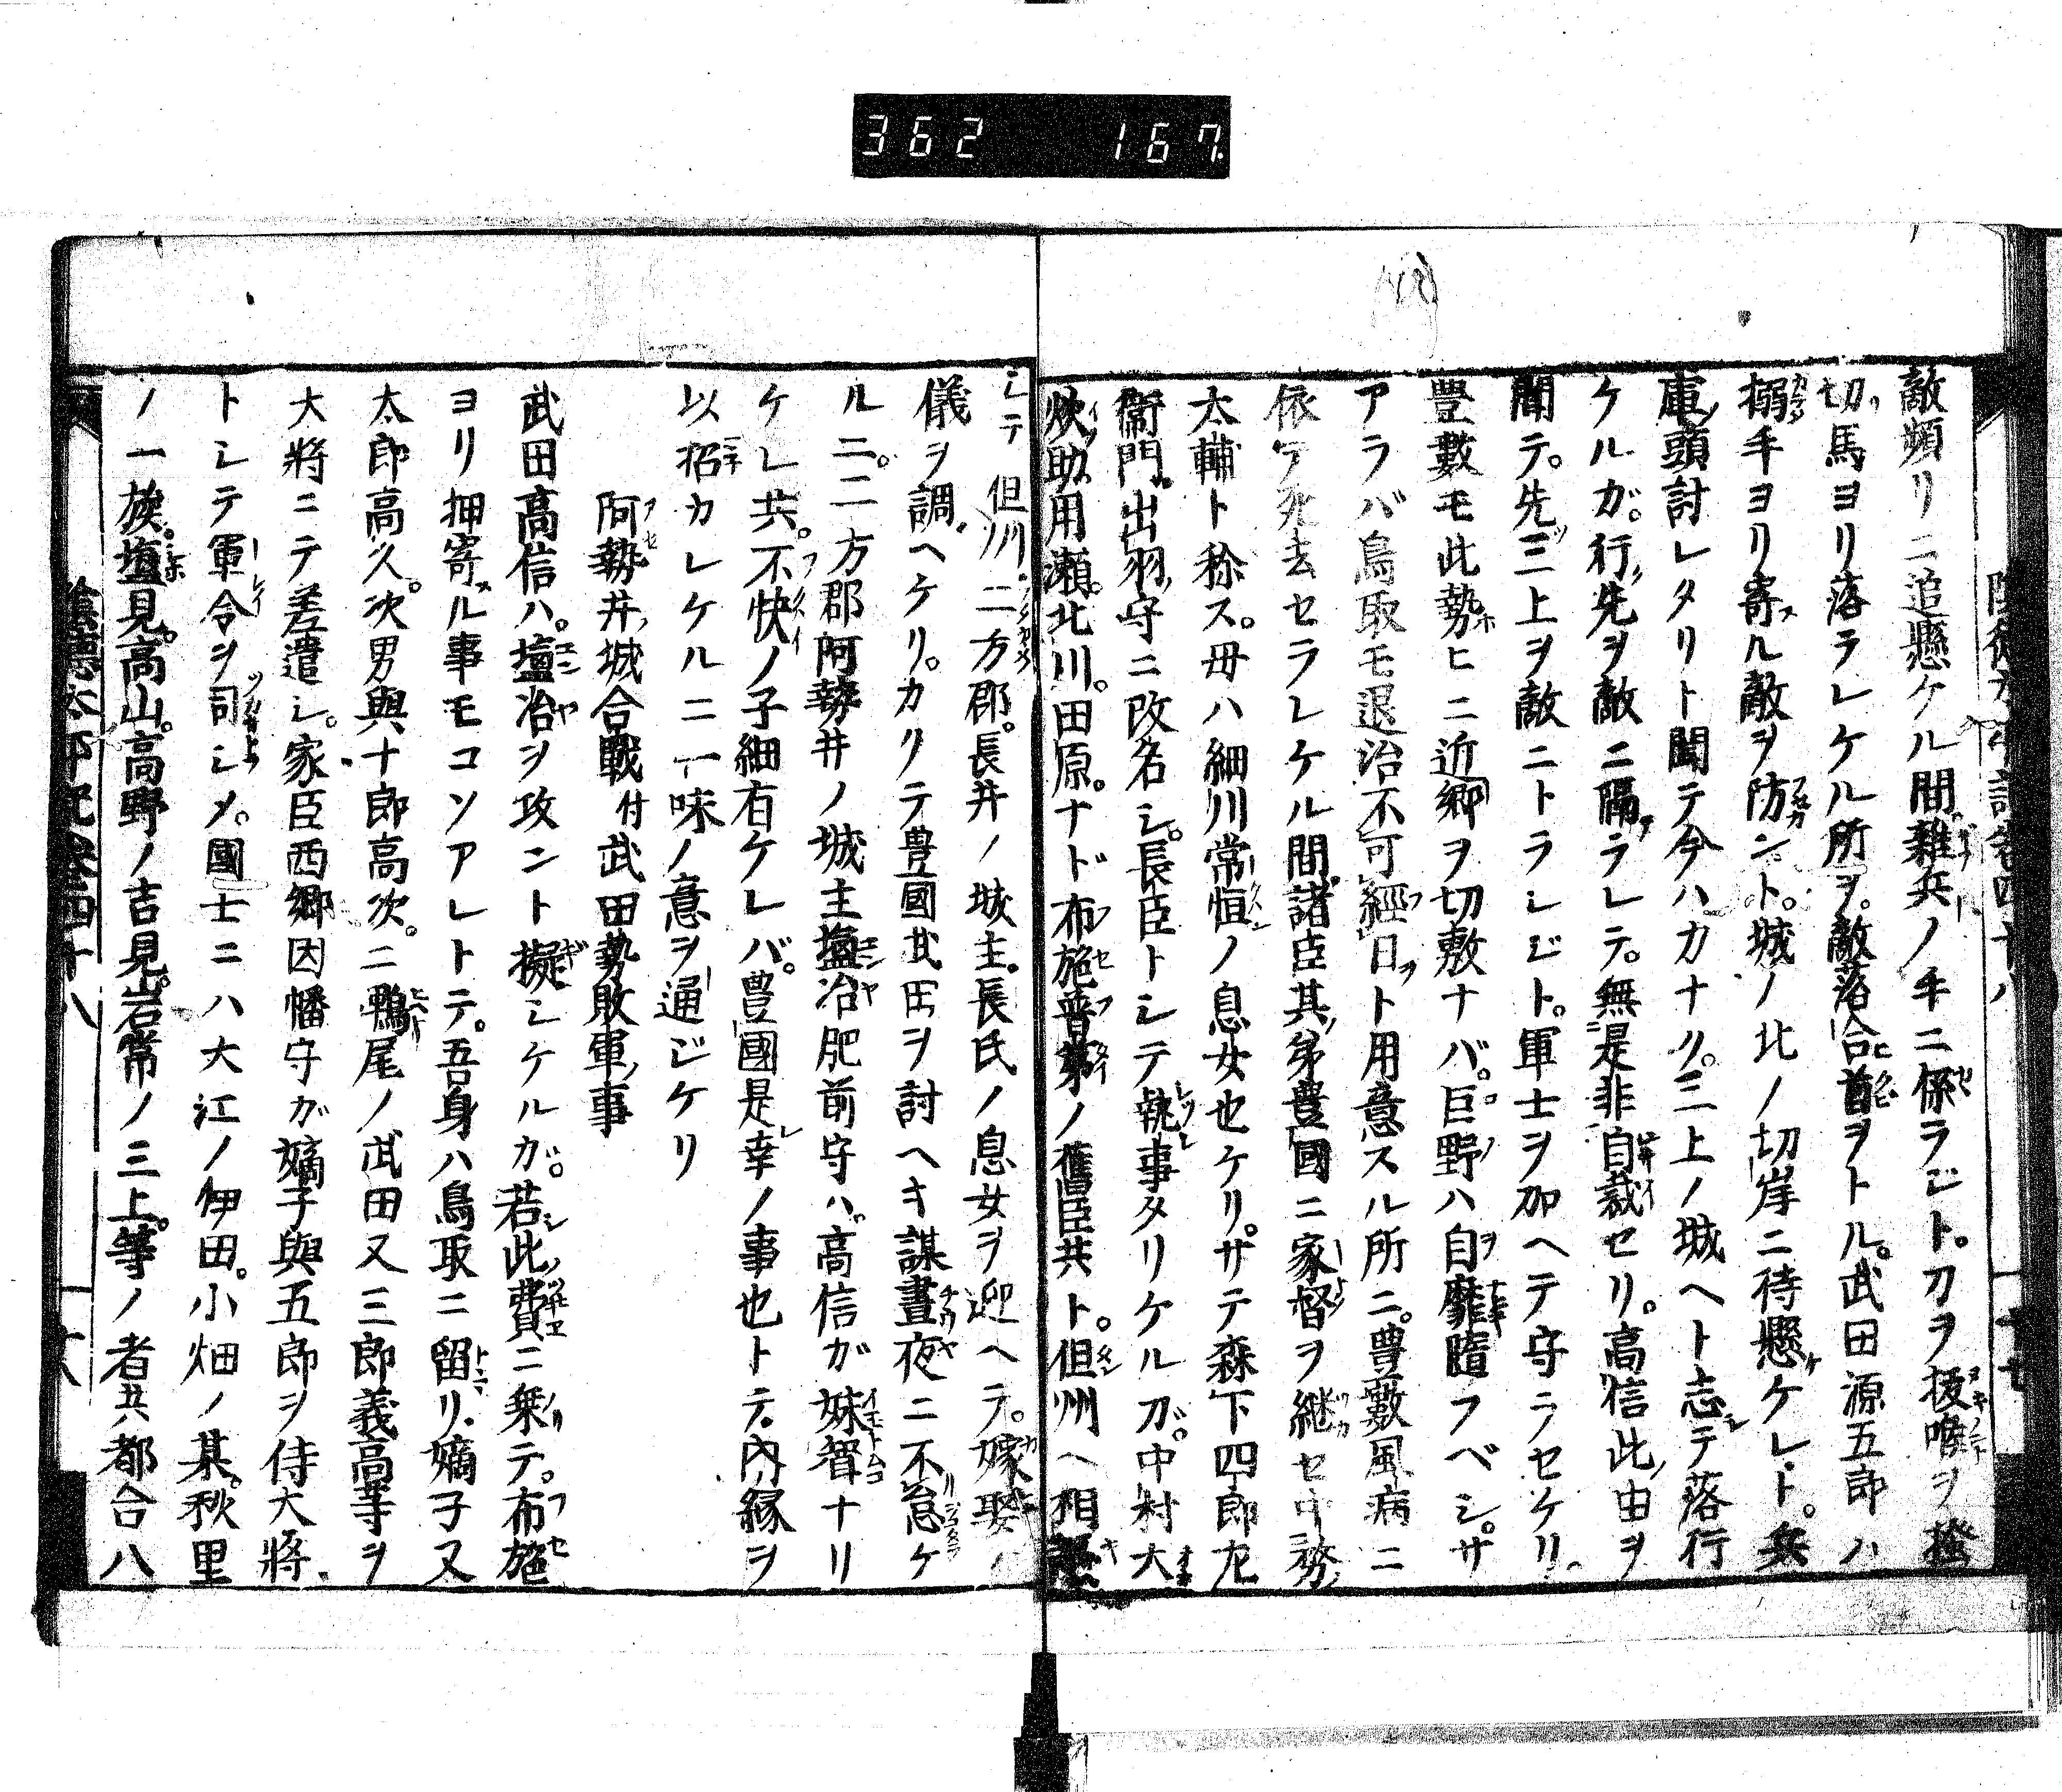 362 167
敵頻リニ追懸ケル間雜兵ノ手ニ係ラジト。刀ヲ拔喉ヲ搔
切馬ヨリ落ラレケル所ヲ。敵落合首ヲトル。武田源五郎ハ
搦手ヨリ寄ル敵ヲ防ント。城ノ北ノ切岸ニ待懸ケレト。兵
庫頭討レタリト聞テ今ハカナリ。三上ノ城ヘト志テ落行
ケルガ。行先ヲ敵ニ隔ラレテ。無是非自裁セリ。高信此由ヲ
聞テ。先三上ヲ敵ニトラレジト。軍士ヲ加ヘテ守ラセケリ。
豊數モ此勢ヒニ近郷ヲ切敷ナバ。巨野ハ自靡隨フベシ。サ
アラバ鳥取モ退治不可經日ト用意スル所ニ。豊數風病ニ
依テ死去セラレケル間。諸臣其弟豊國ニ家督ヲ継セ中務
太輔ト稱ス。母ハ細川常恒ノ息女也ケリ。サテ森下四郎左
衞門。出羽守ニ改名シ。長臣トシテ執事タリケルガ。中村大
炊助。用瀬。北川。田原。ナド布施普第ノ舊臣共ト。但州ヘ相
シテ但州二方郡。長井ノ城主。長氏ノ息女ヲ迎ヘテ。嫁娶ノ
儀ヲ調ヘケリ。カクテ豊國武田ヲ討ヘキ謀晝夜ニ不怠ケ
ルニ。二方郡阿勢井ノ城主塩冶肥前守ハ。高信ガ妹聟ナリ
ケレ共。不快ノ子細有ケレバ。豊國是幸ノ事也トテ。内縁ヲ
以招カレケルニ一味ノ意ヲ通ジケリ
阿勢井城合戰付武田勢敗軍事
武田高信ハ。塩冶ヲ攻ント擬シケルガ。若此費ニ乗テ。布施
ヨリ押寄ル事モコソアレトテ。吾身ハ鳥取ニ留リ。嫡子又
太郎高久。次男與十郎高次。ニ鴨尾ノ武田又三郎義高等ヲ
大將ニテ差遣シ。家臣西郷因幡守ガ嫡子與五郎ヲ侍大將
トシテ軍令ヲ司シメ。國士ニハ大江ノ伊田。小畑ノ某。秋里
ノ一族。塩見。高山。高野ノ吉見。岩常ノ三上。等ノ者共都合八
陰德太平記卷四十八